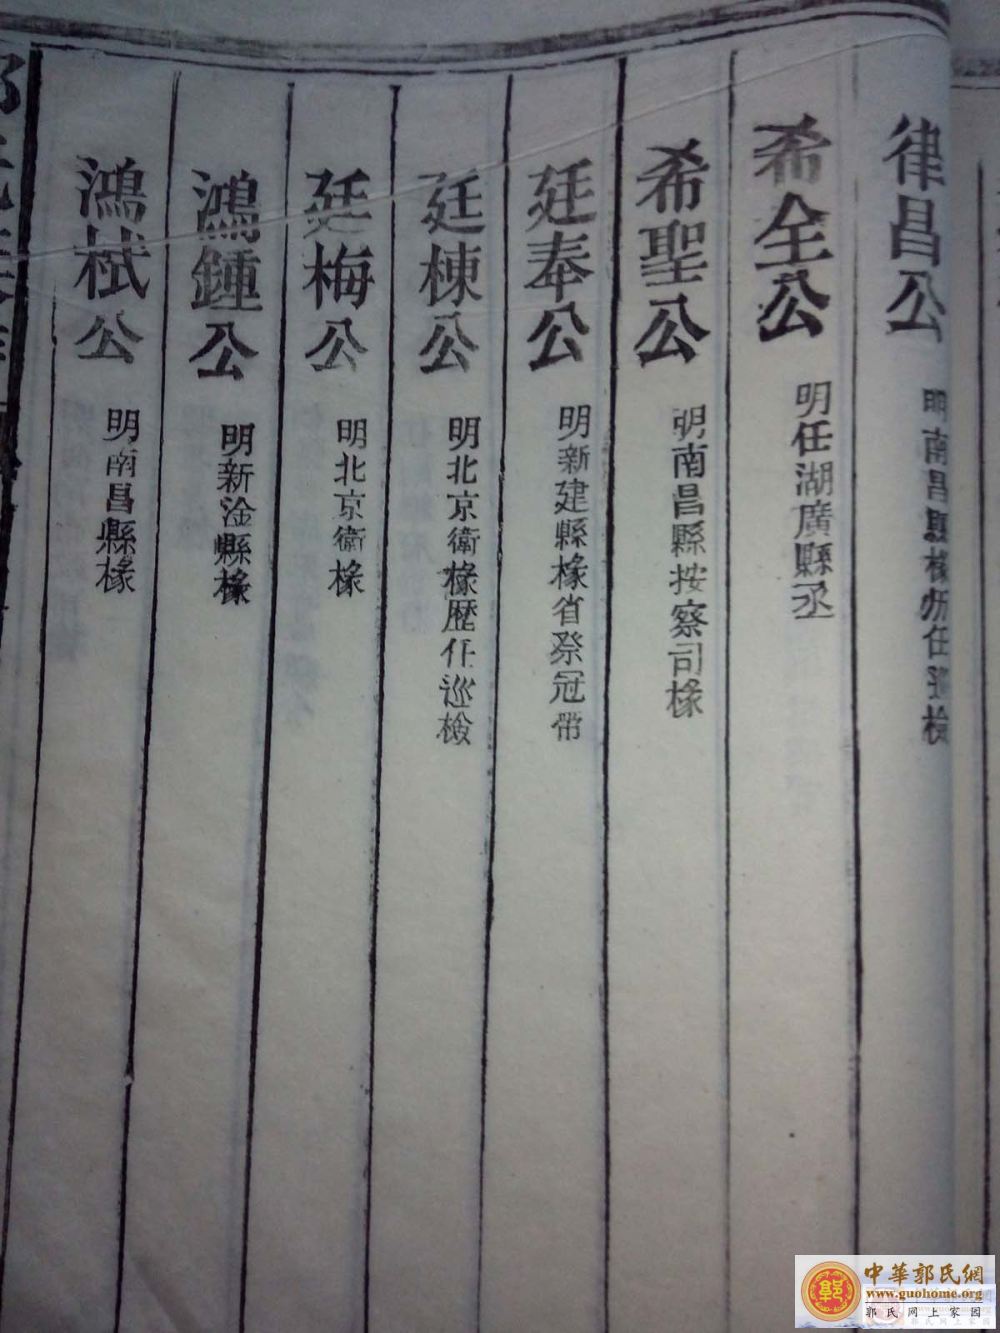 律昌公 明南昌縣椽所任巡檢
希全公 明任湖廣縣丞
希聖公 明南昌縣按察司椽
廷奉公 明新建縣椽省祭冠帶
廷棟公 明北京衛椽歷任巡檢
廷梅公 明北京衛椽
鴻鍾公 明新淦縣椽
鴻栻公 明南昌縣椽
中華郭氏網
www.guohome.org
郭氏网上家园